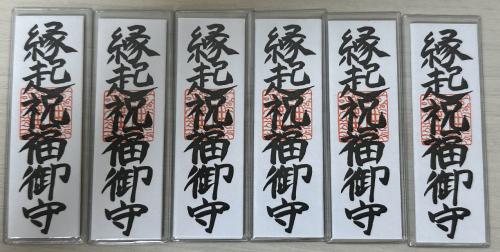 縁起祝福御守
縁起祝福御守
縁起祝福御守
縁起祝福御守
縁起祝福御守
縁起祝福御守